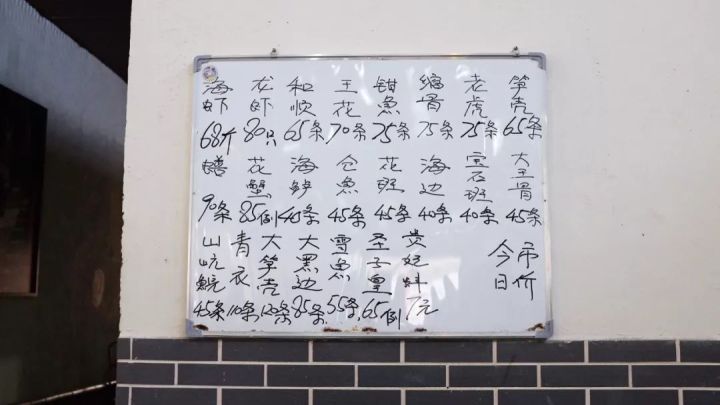 海虾 68斤
龙虾 80只
和顺 65条
王花 70条
钳鱼 75条
缩骨 75条
老虎 75条
笋壳 65条
鳝 90条
花蟹 85例
海鲈 45条
仓鱼 45条
花班 45条
海边 40条
宝石班 40条
大王骨 45条
山坑鲩 45条
青衣 110条
大笋壳 120条
大黑边 85条
雪鱼 55条
圣子皇 65例
贵妃蚌 7元
今日市价